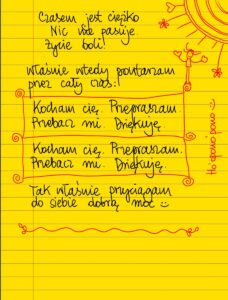 Czasem jest ciężko
Nic nie pasuje
życie boli!
właśnie wtedy powtarzam
przez cały czas:!
Kocham cię. Przepraszam
Przebacz mi. Dziękuję
Kocham cię. Przepraszam.
Przebacz mi. Dziękuję.
Tak właśnie przyciągam
do siebie dobrą moc ☺
Ho'oponopono :-)